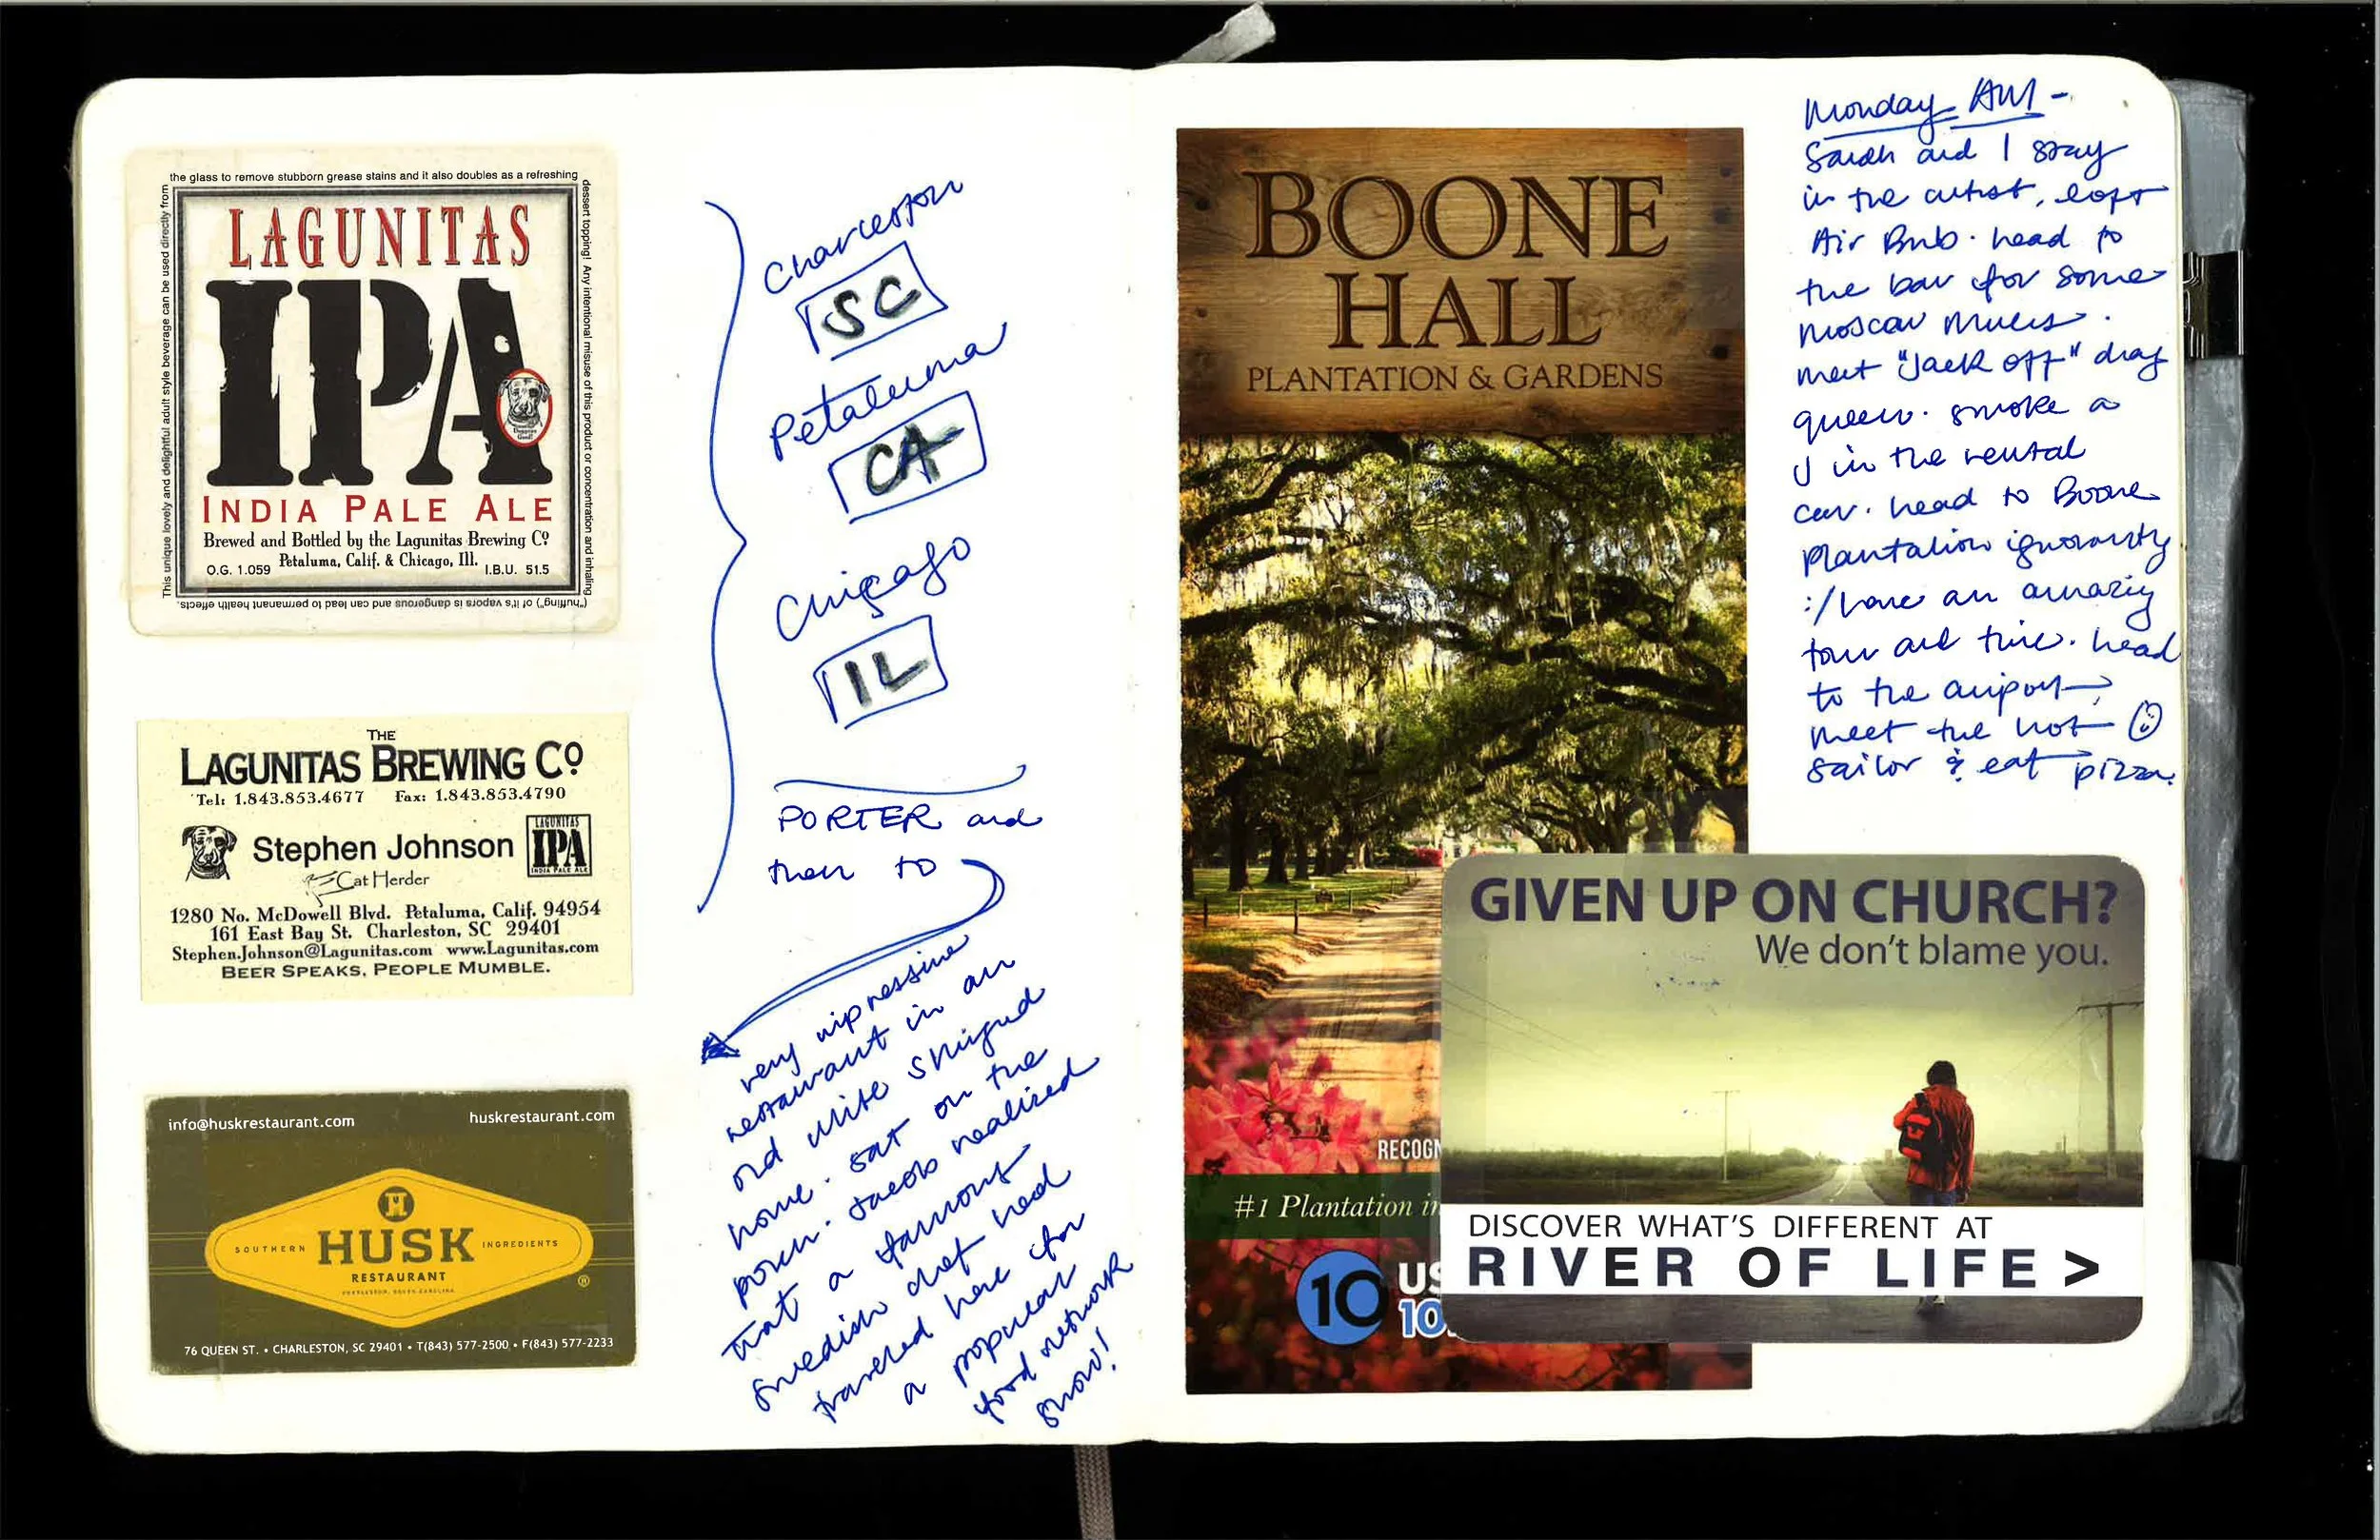 the glass to remove stubborn grease stains and it also doubles as a refreshing
dessert topping! Any intentional misuse of this product or concentration and inhaling
("huffing") of it's vapors is dangerous and can lead to permanent health effects.
This unique lovely and delightful adult style beverage can be used directly from
LAGUNITAS
IPA
INDIA PALE ALE
Brewed and Bottled by the Lagunitas Brewing Cº
Petaluma, Calif. & Chicago, Ill.
O.G. 1.059
I.B.U. 51.5
THE
LAGUNITAS BREWING Cº
Tel: 1.843.853.4677 Fax: 1.843.853.4790
Stephen Johnson
LAGUNITAS
IPA
INDIA PALE ALE
Cat Herder
1280 No. McDowell Blvd. Petaluma, Calif. 94954
161 East Bay St. Charleston, SC 29401
Stephen.Johnson@Lagunitas.com www.Lagunitas.com
BEER SPEAKS, PEOPLE MUMBLE.
info@huskrestaurant.com
huskrestaurant.com
H
SOUTHERN
HUSK
INGREDIENTS
RESTAURANT
CHARLESTON, SOUTH CAROLINA
®
76 QUEEN ST. • CHARLESTON, SC 29401 • T(843) 577-2500 • F(843) 577-2233
Charleston
SC
Petaluma
CA
Chicago
IL
PORTER and
then to
very impressive
restaurant in an
old white shingled
home. sat on the
porch. Jacob realized
that a famous
swedish chef had
traveled here for
a popular
food network
show!
BOONE
HALL
PLANTATION & GARDENS
RECOGN
#1 Plantation in
10
US
10
GIVEN UP ON CHURCH?
We don't blame you.
DISCOVER WHAT'S DIFFERENT AT
RIVER OF LIFE >
Monday AM -
Sarah and I stay
in the artist, loft
Air Bnb. head to
the bar for some
moscow mules.
meet "Jack off" drag
queen. smoke a
J in the rental
car. head to Boone
Plantation ignorantly
:/ have an amazing
tour and time. head
to the airport,
meet the hot
sailor & eat pizza.